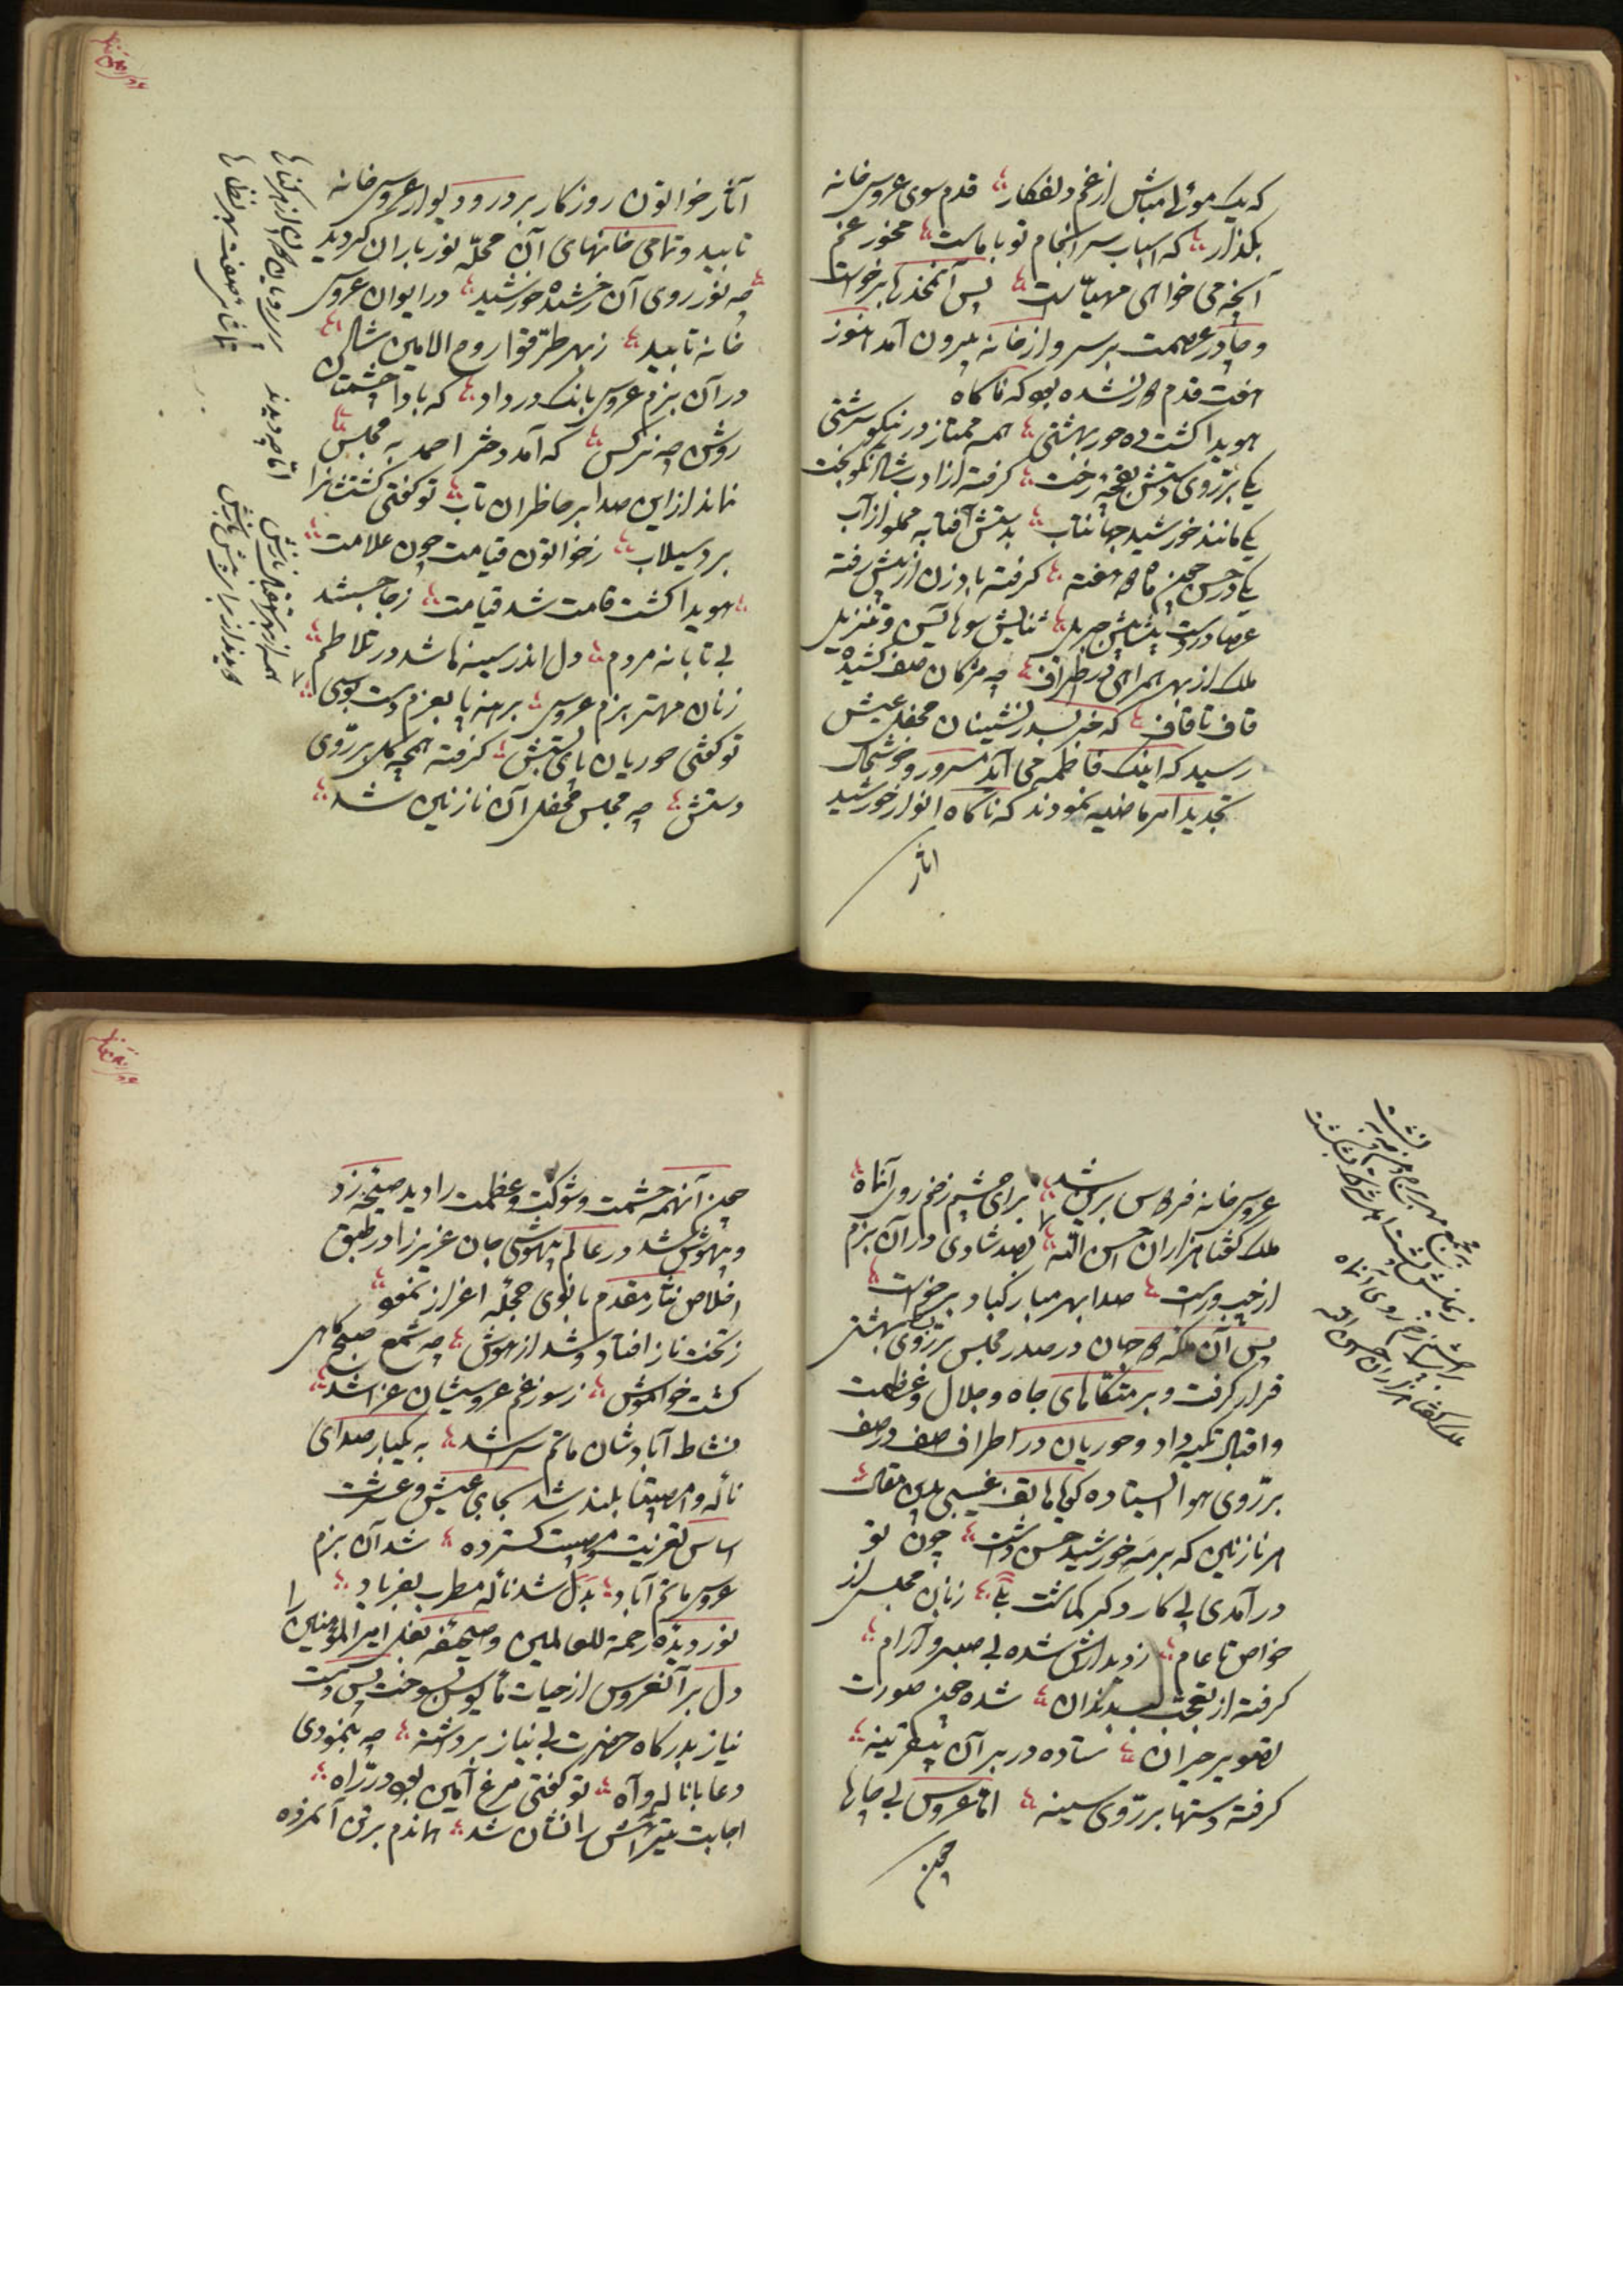 که یک موئی مباش از غم دلفکار قدم سوی عروس خانه
بگذار که اسباب سرانجام تو با ماست مخور غم
آنچه می خواهی مهیاست پس آنمخدره برخواست
و چادر عصمت بر سر و از خانه بیرون آمد هنوز
هفت قدم نشده بود که ناگاه
هویدا گشت ده حور بهشتی همه ممتاز در نیکو سرشتی
یکی بر روی دستش بقچهٔ رخت گرفته از ادب نکوبخت
یکی مانند خورشید جهانتاب بدستش آفتابه مملو از آب
یکی در حسن چون ماه دو هفته گرفته بادزن از پیش رفته
عصا در دست پیشاپیش جبریل ثنایش سورهای و تنزیل
ملک از بهر همراهی در اطراف چه مژکان صف کشیده
قاف تا قاف که خبر بصدرنشینان محفل عیش
رسید که اینک فاطمه می آید مسرور و خوشحال
تجدید امر ماضیه نمودند که ناگاه انوار خورشید
اثار
آثار خواتون روزکار بر در و دیوار عروس خانه
تابید و تمامی خانهای آن محلّه نور باران گردید
چه نور روی آن رخشنده خورشید در ایوان عروس
خانه تابید ز بهر طرّقوا روح الامین شان
در آن بزم عروس بانک در داد که بادا چشمتان
روشن چه نرکس که آمد دختر احمد به مجلس
نماند از این صدا بر حاظران تاب تو گفتی کشتشانرا
برد سیلاب ز خواتون قیامت چون علامت
هویدا گشت قامت شد قیامت ز جا جستند
بی تابانه مردم دل اندر سینه‌ها شد در تلاطم
زنان مهتر بزم عروسی برهنه پا بعزم دست بوسی
تو گفتی حوریان پای بستش گرفته همچه گل بر روی
دستش چه مجلس محفل آن نازنین شد
اما چه دیدند
عروس خانه فردوس برین شد برای چشم زخم روی آنماه
ملک گفتا هزاران احسن الله بصد شادی در آن بزم
از چپ و راست صدا بهر مبارکباد برخواست
پس آن ملکهٔ جهان در صدر مجلس بر روی بهشتی
قرار گرفت و بر متکّاهای جاه و جلال و عظمت
و اقبال تکیه داد و حوریان در اطراف صف در صف
بر روی هوا ایستاده گویا هاتف غیبی باین مقال
هر نازنین که بر مه و خورشید حسن داشت چون تو
در آمدی پی کار دگر گماشت بلی زنان مجلس از
خواص تا عام ز دیدارش شده بی صبر و آرام
گرفته از تعجب لب بدندان شده چون صورت
تصویر حیران ستاده در بر آن بیقرینه
گرفته دستها بر روی سینه امّا عروس بی چارها
چون
چون آنهمه حشمت و شوکت و عظمت را دید صیحه زد
و بیهوش شد در عالم بیهوشی جان عزیز را در طبق
اخلاص نثار مقدم بانوی حجلهٔ اعزاز نمود
ز تخت ناز افتاد و شد از هوش چه شمع صبحگاهی
گشت خواموش ز سوز غم عروسیشان عزا شد
نشاط آبادشان ماتم سرا شد به یکبار صدای
ناله و امصیبتا بلند شد بجای عیش و عشرت
اساس تعزیت و مصیبت گسترده شد آن بزم
عروسی ماتم آباد بدل شد نالهٔ مطرب بفریاد
نور دیدهٔ رحمة للعالمین و صحیفهٔ بغل امیر المؤمنین را
دل بر آنعروس از حیات مأیوس بسوخت پس دست
نیاز بدرگاه حضرت بی نیاز برداشته چه بنمودی
دعا با ناله و آه تو گفتی مرغ آمین بود در راه
اجابت تیر آهش را نشان شد هماندم بر تن آنمرده
ملک گفتا هزاران احسن الله